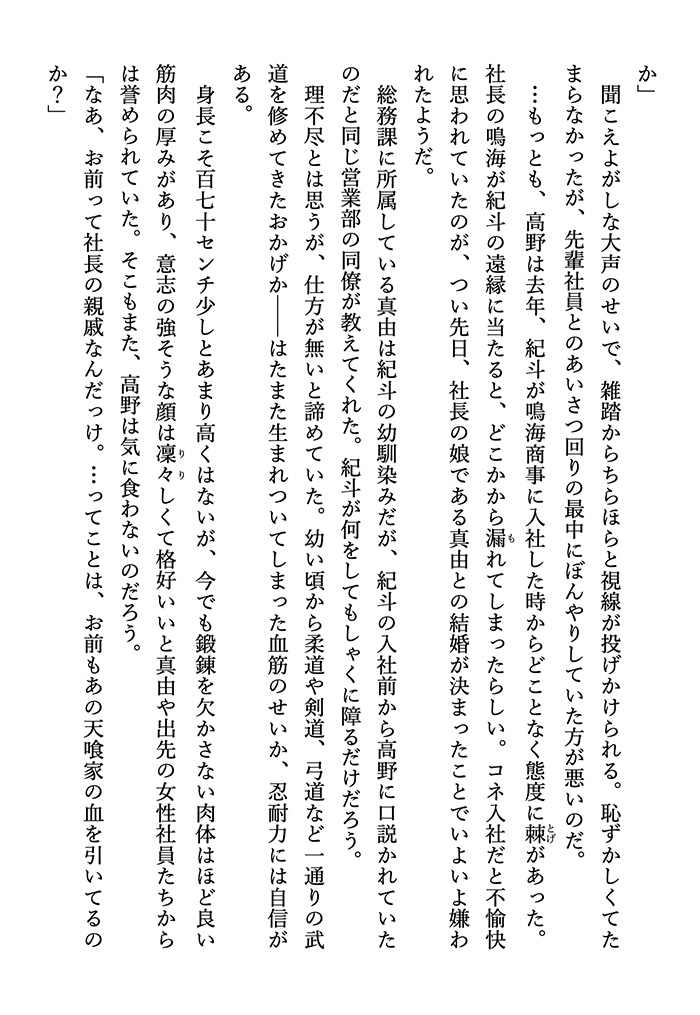 か」
　聞こえよがしな大声のせいで、雑踏からちらほらと視線が投げかけられる。恥ずかしくてた
まらなかったが、先輩社員とのあいさつ回りの最中にぼんやりしていた方が悪いのだ。
　…もっとも、高野は去年、紀斗が鳴海商事に入社した時からどことなく態度に棘があった。
社長の鳴海が紀斗の遠縁に当たると、どこかから漏れてしまったらしい。コネ入社だと不愉快
に思われていたのが、つい先日、社長の娘である真由との結婚が決まったことでいよいよ嫌わ
れたようだ。
　総務課に所属している真由は紀斗の幼馴染みだが、紀斗の入社前から高野に口説かれていた
のだと同じ営業部の同僚が教えてくれた。紀斗が何をしてもしゃくに障るだけだろう。
　理不尽とは思うが、仕方が無いと諦めていた。幼い頃から柔道や剣道、弓道など一通りの武
道を修めてきたおかげか――はたまた生まれついてしまった血筋のせいか、忍耐力には自信が
ある。
　身長こそ百七十センチ少しとあまり高くはないが、今でも鍛錬を欠かさない肉体はほど良い
筋肉の厚みがあり、意志の強そうな顔は凜々しくて格好いいと真由や出先の女性社員たちから
は誉められていた。そこもまた、高野は気に食わないのだろう。
「なあ、お前って社長の親戚なんだっけ。…ってことは、お前もあの天喰家の血を引いてるの
か？」